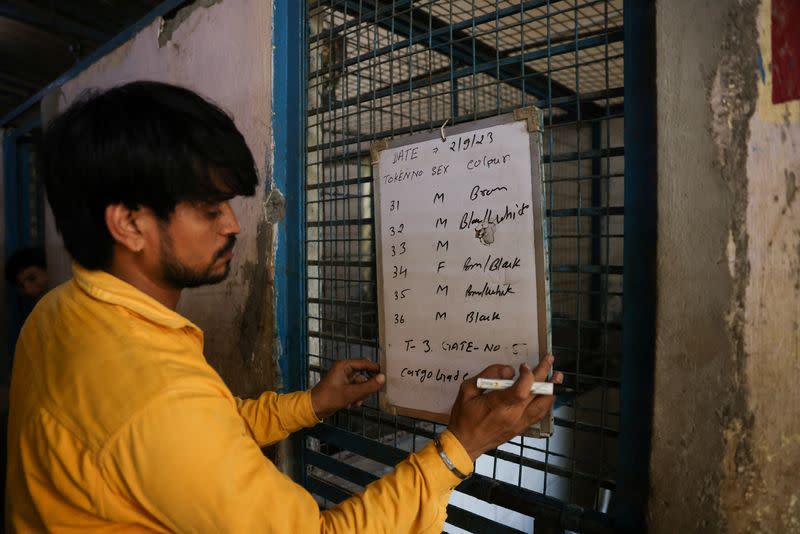 DATE → 2/9/23
TOKEN NO SEX Colour
31 M Brown
32 M Black/White
33 M
34 F Brn/Black
35 M Brn/White
36 M Black
T-3. GATE-NO-5
Cargo